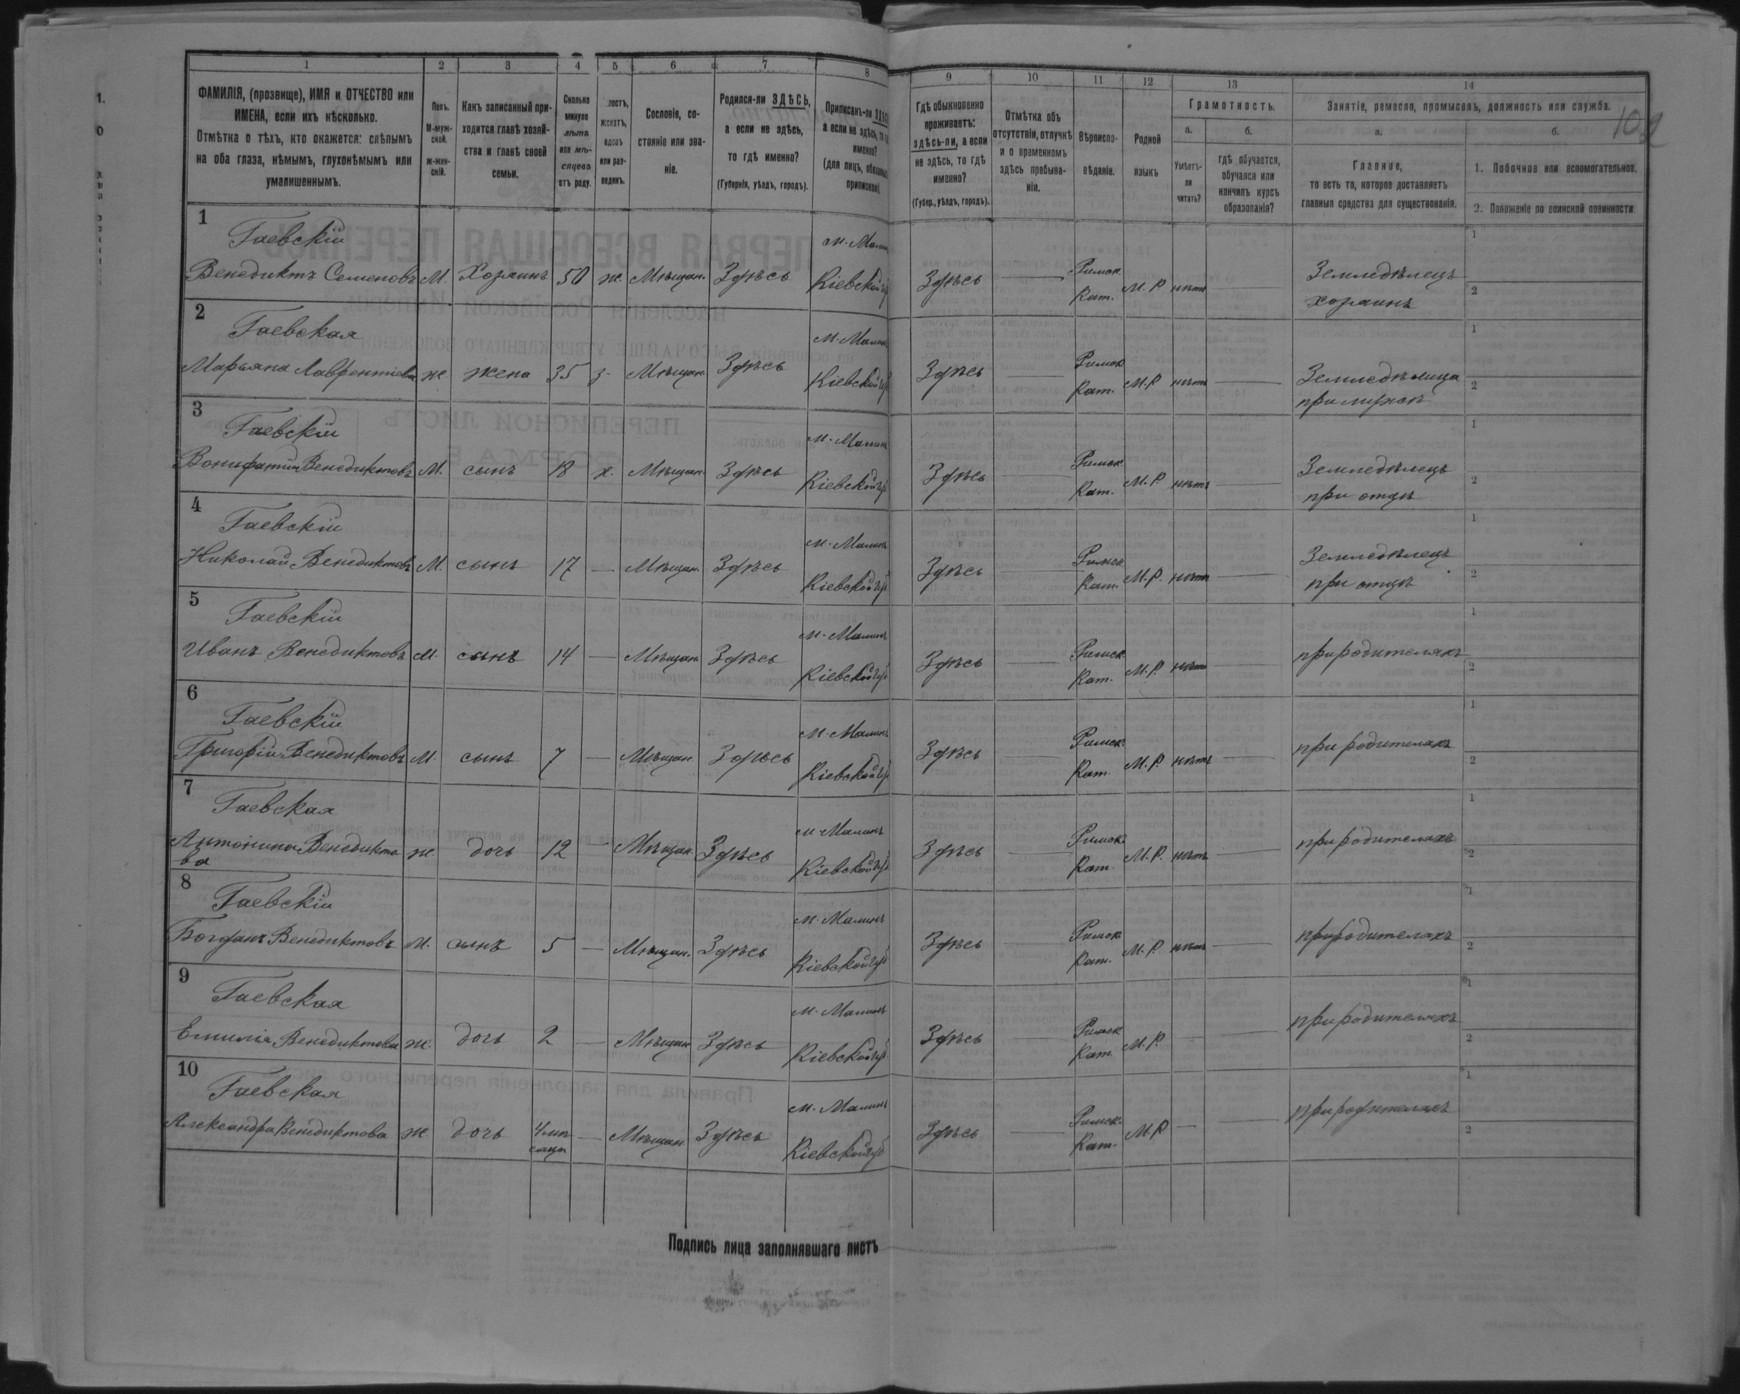 1 2 3 4 5 6 7 8 9 10 11 12 13 14
ФАМИЛІЯ, (прозвище), ИМЯ и ОТЧЕСТВО или
ИМЕНА, если ихъ нѣсколько.
Отмѣтка о тѣхъ, кто окажется: слѣпымъ
на оба глаза, нѣмымъ, глухонѣмымъ или
умалишеннымъ.
Полъ.
М-муж-
ской.
Ж-жен-
скій.
Какъ записанный при-
ходится главѣ хозяй-
ства и главѣ своей
семьи.
Сколько
минуло
лѣтъ
или мѣ-
сяцевъ
отъ роду.
Сословіе, со-
стояніе или зва-
ніе.
Родился-ли ЗДѢСЬ,
а если не здѣсь,
то гдѣ именно?
(Губернія, уѣздъ, городъ).
Приписанъ-ли
а если не здѣсь,
именно?
(для лицъ,
Гдѣ обыкновенно
проживаетъ:
здѣсь-ли, а если
не здѣсь, то гдѣ
именно?
(Губер., уѣздъ, городъ).
Отмѣтка объ
отсутствіи, отлучкѣ
и о временномъ
здѣсь пребыва-
ніи.
Вѣроиспо-
вѣданіе.
Родной
языкъ
Грамотность.
а.
Умѣетъ-
ли
читать?
б.
гдѣ обучается,
обучался или
кончилъ курсъ
образованія?
Занятіе, ремесло, промыселъ, должность или служба.
а.
Главное,
то есть то, которое доставляетъ
главныя средства для существованія.
б.
1. Побочное или вспомогательное.
2. Положеніе по воинской повинности
1
Гаевскій
Венедиктъ Семеновъ М. Хозяинъ 50 ж. Мѣщан. Здѣсь м. Малин Кіевской Здѣсь — Римск. Кат. М.Р. нѣтъ Земледѣлецъ хозяинъ
2
Гаевская
Марьяна Лаврентіева ж жена 35 з. Мѣщан. Здѣсь м. Малин Кіевской Здѣсь — Римск. Кат. М.Р. нѣтъ — Земледѣлица при мужѣ
3
Гаевскій
Вонифатій Венедиктовъ М. сынъ 18 х. Мѣщан. Здѣсь м. Малин Кіевской Здѣсь — Римск. Кат. М.Р. нѣтъ — Земледѣлецъ при отцѣ
4
Гаевскій
Николай Венедиктовъ М. сынъ 17 — Мѣщан. Здѣсь м. Малинъ Кіевской Здѣсь — Римск. Кат. М.Р. нѣтъ — Земледѣлецъ при отцѣ
5
Гаевскій
Иванъ Венедиктовъ М. сынъ 14 — Мѣщан. Здѣсь м. Малинъ Кіевской Здѣсь — Римск. Кат. М.Р. нѣтъ — при родителяхъ
6
Гаевскій
Григорій Венедиктовъ М. сынъ 7 — Мѣщан. Здѣсь м. Малинъ Кіевской Здѣсь — Римск. Кат. М.Р. нѣтъ — при родителяхъ
7
Гаевская
Антонина Венедикто
ва ж. дочь 12 — Мѣщан. Здѣсь м. Малинъ Кіевской Здѣсь — Римск. Кат. М.Р. нѣтъ — при родителяхъ
8
Гаевскій
Богданъ Венедиктовъ М. сынъ 5 — Мѣщан. Здѣсь м. Малинъ Кіевской Здѣсь — Римск. Кат. М.Р. нѣтъ — при родителяхъ
9
Гаевская
Емилія Венедиктова ж. дочь 2 — Мѣщан. Здѣсь м. Малинъ Кіевской Здѣсь — Римск. Кат. М.Р. — — при родителяхъ
10
Гаевская
Александра Венедиктова ж дочь 4 мѣ-
сяца — Мѣщан. Здѣсь м. Малинъ Кіевской Здѣсь — Римск. Кат. М.Р. — — при родителяхъ
Подпись лица заполнявшаго листъ